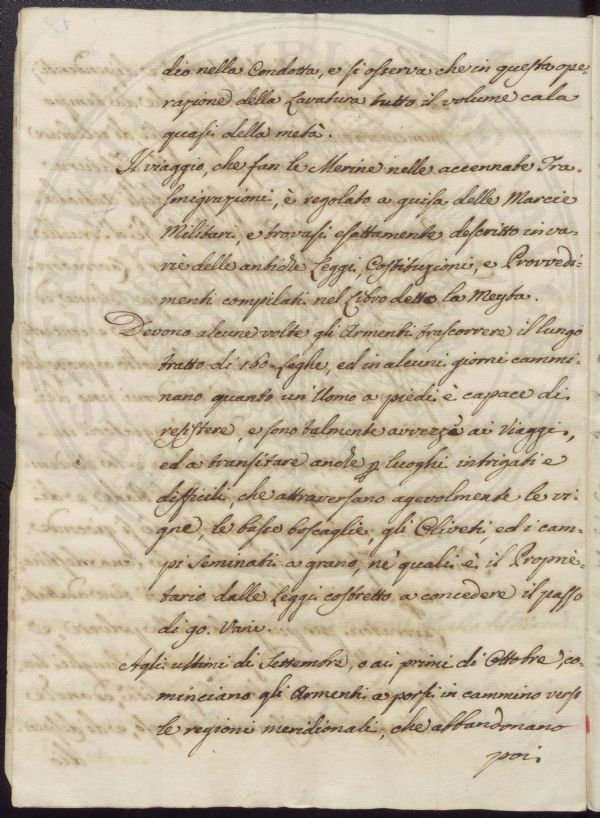 dio nella Condotta, e si osserva che in questa ope=
razione della Lavatura tutto il volume cala
quasi della metà.
Il viaggio, che fan le Merine nelle accennate Tra=
smigrazioni, è regolato a guisa delle Marcie
Militari, e trovasi esattamente descritto in va=
rie delle antiche Leggi, Costituzioni, e Provvedi=
menti compilati nel Libro detto la Meyta.
Devono alcune volte gli Armenti trascorrere il lungo
tratto di 160. Leghe, ed in alcuni giorni cammi=
nano quanto un' Uomo a piedi è capace di
resistere, e sono talmente avvezzi ai Viaggi,
ed a transitare anche p luoghi intrigati e
difficili, che attraversano agevolmente le vi=
gne, le basse boscaglie, gli Oliveti, ed i cam=
pi seminati a grano, ne' quali è il Proprie=
tario dalle Leggi costretto a concedere il passo
di 90. Vare.
Agli ultimi di Settembre, o ai primi di Ottobre, co=
minciano gli Armenti a porsi in cammino verso
le regioni meridionali, che abbandonano
poi